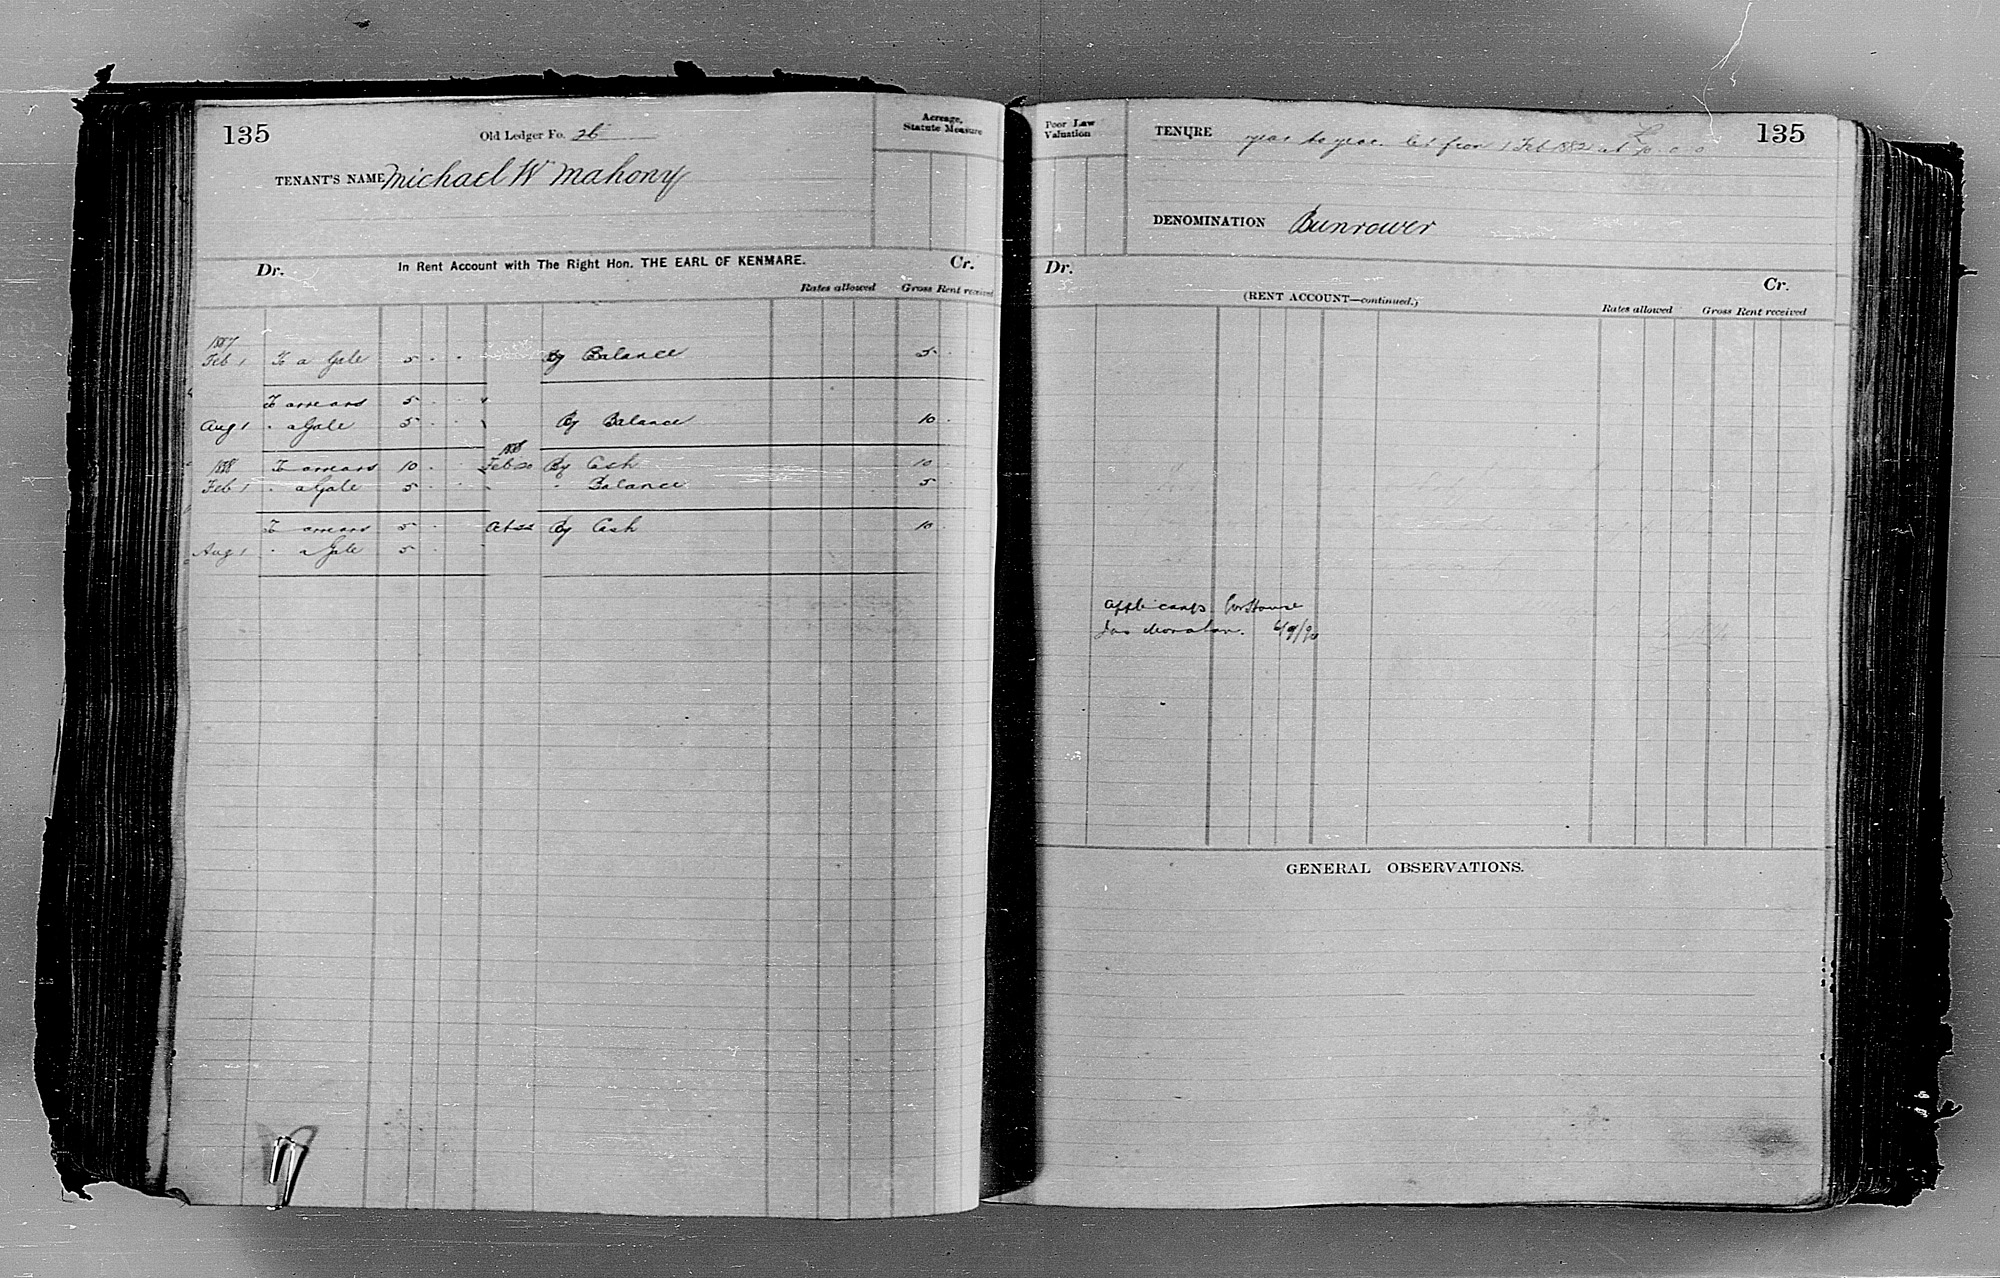 135
Old Ledger Fo. 26
Acreage, Statute Measure
TENANT'S NAME Michael W Mahony
Dr. In Rent Account with The Right Hon. THE EARL OF KENMARE. Cr.
Rates allowed Gross Rent received
1887
Feb 1 To a Gale 5 - - By Balance 5 - -
To arrears 5 - -
Aug 1 " a Gale 5 - - By Balance 10 -
1888 To arrears 10 - - 1888 Feb 20 By Cash 10 -
Feb 1 " a Gale 5 - - " Balance 5 -
To arrears 5 - Oct 22 By Cash 10 -
Aug 1 " a Gale 5 -
Poor Law Valuation
TENURE year to year. let from 1 Feb 1882 at £10. 0. 0
135
DENOMINATION Bunrower
Dr. Cr.
(RENT ACCOUNT—continued.)
Rates allowed Gross Rent received
Applicants for House
Jas 6/9/90
GENERAL OBSERVATIONS.